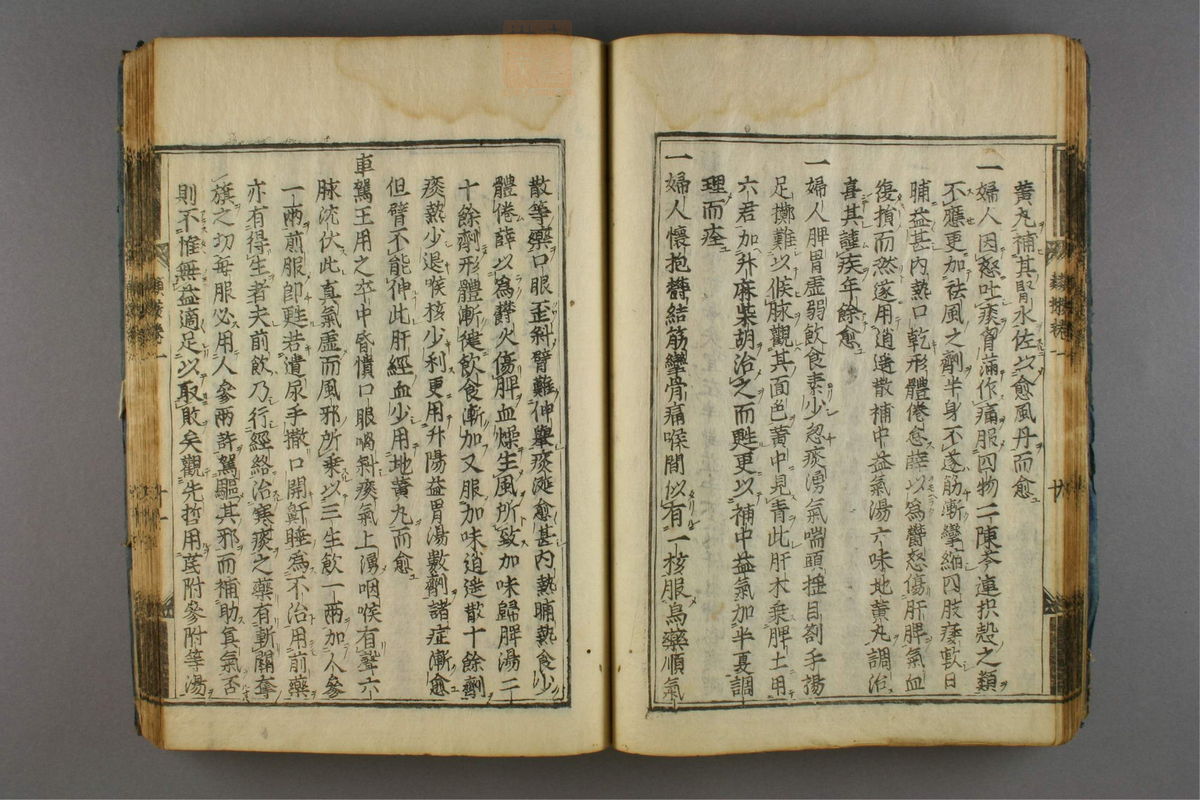 黄丸補其腎水佐以愈風丹而愈
一婦人因怒吐痰胷滿作痛服四物二陳芩連枳殻之類
不應更加祛風之劑半身不遂筋漸攣縮四肢痿軟日
晡益甚内熱口乾形體倦怠薛以為鬱怒傷肝脾氣血
復損而然遂用逍遥散補中益氣湯六味地黄丸調治
喜其謹疾年餘愈
一婦人脾胃虚弱飲食素少忽痰湧氣喘頭揺目劄手揚
足擲難以候脉觀其面色黄中見青此肝木乗脾土用
六君加升麻柴胡治之而甦更以補中益氣加半夏調
理而痊
一婦人懷抱鬱結筋攣骨痛喉間似有一核服烏藥順氣
散等藥口眼歪斜臂難伸舉痰涎愈甚内熱晡熱食少
體倦薛以為鬱火傷脾血燥生風所致加味歸脾湯二
十餘劑形體漸健飲食漸加又服加味逍遥散十餘劑
痰熱少退喉核少利更用升陽益胃湯數劑諸症漸愈
但臂不能伸此肝經血少用地黄丸而愈
車駕王用之卒中昏憒口眼喎斜痰氣上湧咽喉有聲六
脉沈伏此真氣虚而風邪所乗以三生飲一兩加人參
一兩煎服即甦若遺尿手撒口開鼾睡為不治用前藥
亦有得生者夫前飲乃行經絡治寒痰之藥有斬關奪
旗之功毎服必用人參兩許駕驅其邪而補助真氣否
則不惟無益適足以取敗矣觀先哲用芪附參附等湯